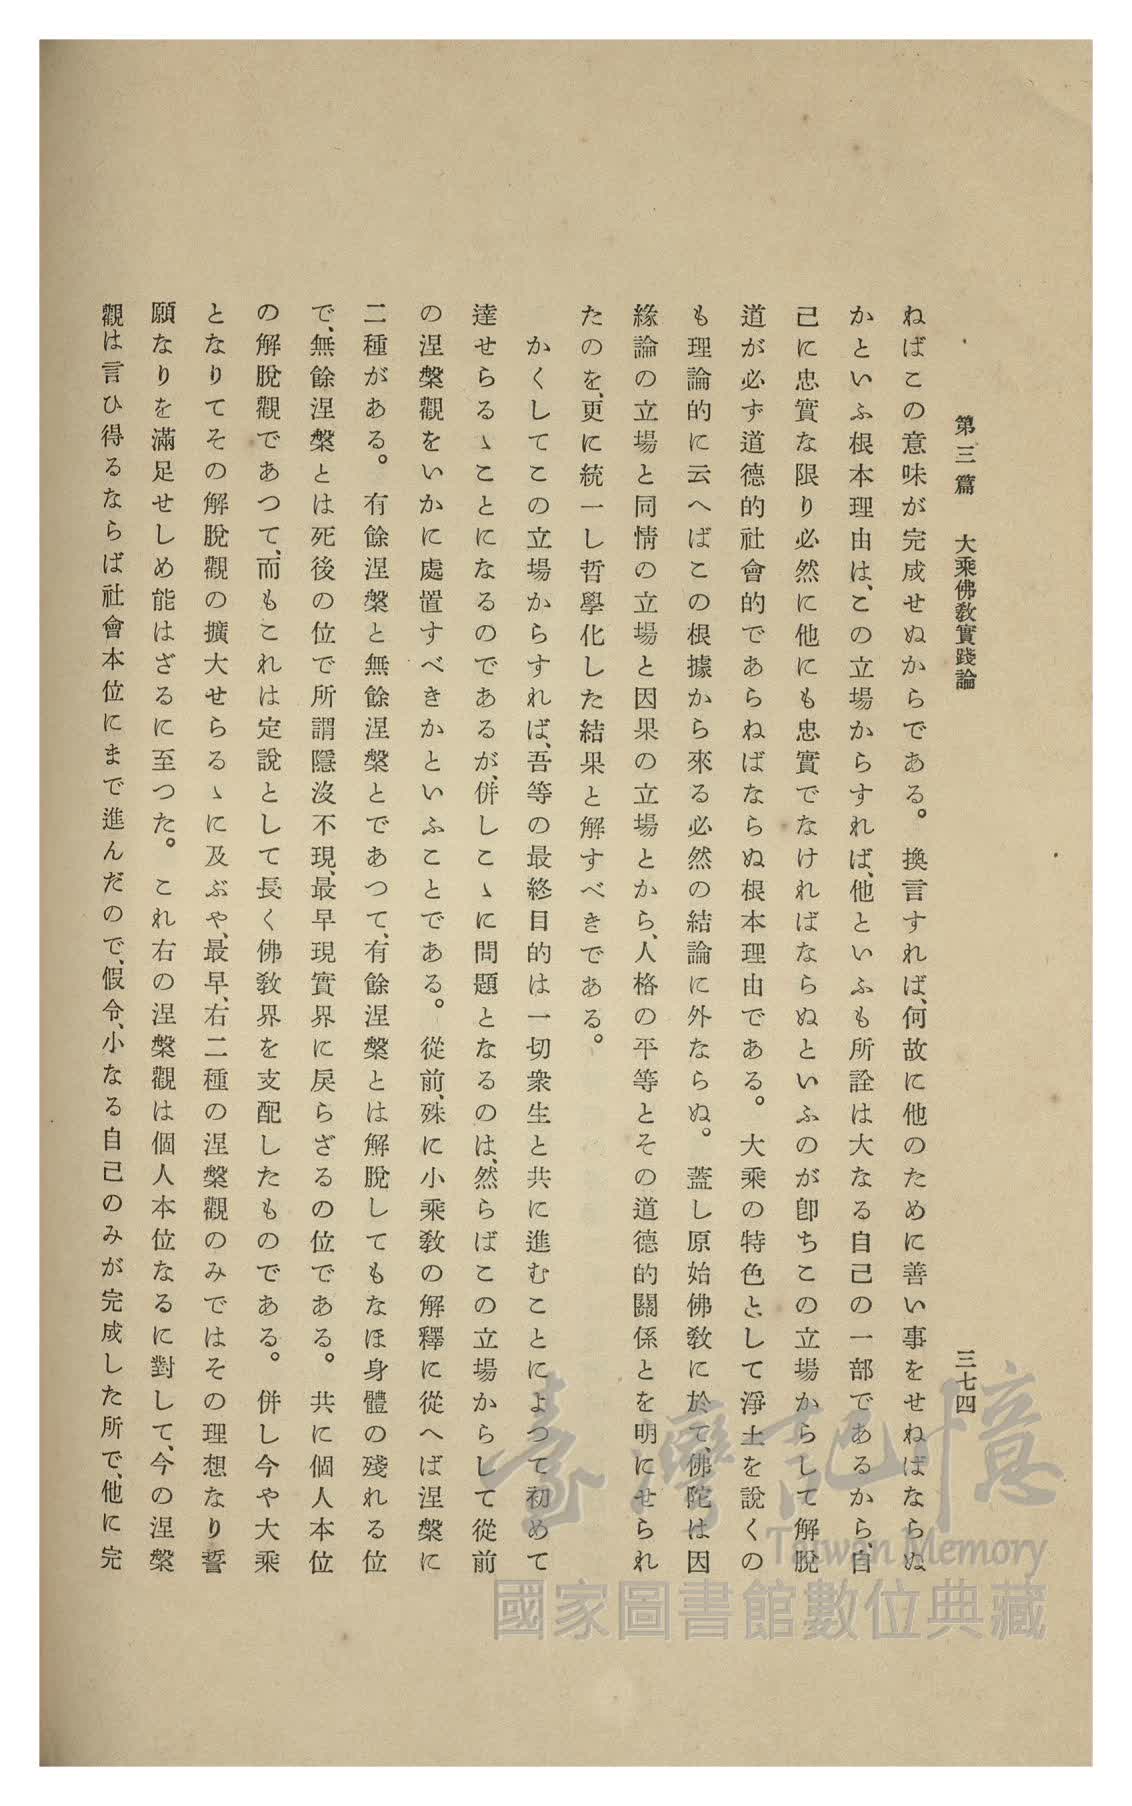 第三篇　大乘佛敎實踐論
三七四
ねばこの意味が完成せぬからである。換言すれば、何故に他のために善い事をせねばならぬ
かといふ根本理由は、この立場からすれば、他といふも所詮は大なる自己の一部であるから、自
己に忠實な限り必然に他にも忠實でなければならぬといふのが卽ちこの立場からして解脫
道が必ず道德的社會的であらねばならぬ根本理由である。大乘の特色として淨土を說くの
も理論的に云へばこの根據から來る必然の結論に外ならぬ。蓋し原始佛敎に於て、佛陀は因
緣論の立場と同情の立場と因果の立場とから、人格の平等とその道德的關係とを明にせられ
たのを、更に統一し哲學化した結果と解すべきである。
かくしてこの立場からすれば、吾等の最終目的は一切衆生と共に進むことによつて初めて
達せらるゝことになるのであるが、併しこゝに問題となるのは、然らばこの立場からして從前
の涅槃觀をいかに處置すべきかといふことである。從前、殊に小乘敎の解釋に從へば涅槃に
二種がある。有餘涅槃と無餘涅槃とであつて、有餘涅槃とは解脫してもなほ身體の殘れる位
で、無餘涅槃とは死後の位で所謂隱沒不現、最早現實界に戾らざるの位である。共に個人本位
の解脫觀であつて、而もこれは定說として長く佛敎界を支配したものである。併し今や大乘
となりてその解脫觀の擴大せらるゝに及ぶや、最早、右二種の涅槃觀のみではその理想なり誓
願なりを滿足せしめ能はざるに至つた。これ右の涅槃觀は個人本位なるに對して、今の涅槃
觀は言ひ得るならば社會本位にまで進んだので、假令、小なる自己のみが完成した所で、他に完
臺灣記憶
Taiwan Memory
國家圖書館數位典藏